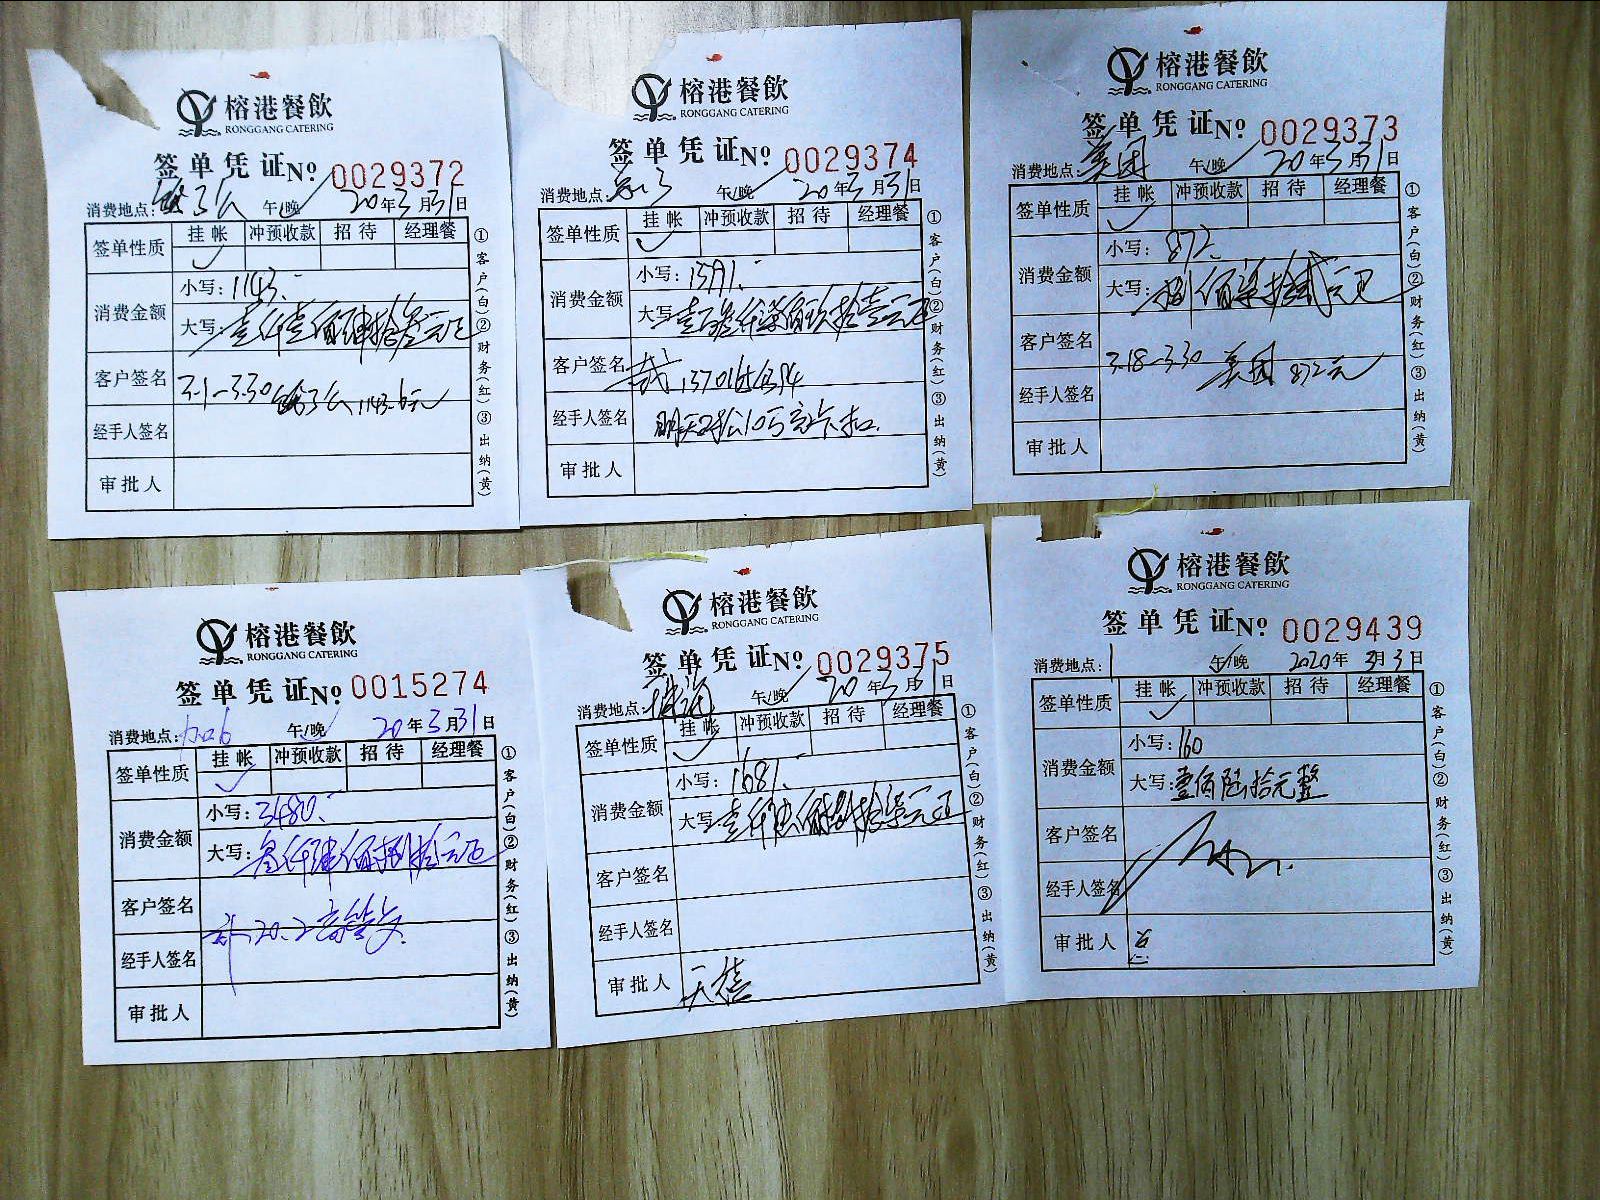 榕港餐飲
RONGGANG CATERING
签单凭证№ 0029372
消费地点: 午/晚 20年3月31日
签单性质 挂帐 冲预收款 招待 经理餐
消费金额 小写: 1143.-
大写: 壹仟壹佰肆拾叁元正
客户签名 3.1-3.30 1143.6元
经手人签名
审批人
①客户(白)②财务(红)③出纳(黄)
榕港餐飲
RONGGANG CATERING
签单凭证№ 0029374
消费地点: 午/晚 20年3月31日
签单性质 挂帐 冲预收款 招待 经理餐
消费金额 小写:
大写:
客户签名
经手人签名
审批人
①客户(白)②财务(红)③出纳(黄)
榕港餐飲
RONGGANG CATERING
签单凭证№ 0029373
消费地点: 美团 午/晚 20年3月31日
签单性质 挂帐 冲预收款 招待 经理餐
消费金额 小写: 872.
大写: 捌佰柒拾贰元正
客户签名 3.18-3.30 美团 872元
经手人签名
审批人
①客户(白)②财务(红)③出纳(黄)
榕港餐飲
RONGGANG CATERING
签单凭证№ 0015274
消费地点: 午/晚 20年3月31日
签单性质 挂帐 冲预收款 招待 经理餐
消费金额 小写: 3480.-
大写: 叁仟肆佰捌拾元正
客户签名
经手人签名
审批人
①客户(白)②财务(红)③出纳(黄)
榕港餐飲
RONGGANG CATERING
签单凭证№ 0029375
消费地点: 午/晚 20年3月31日
签单性质 挂帐 冲预收款 招待 经理餐
消费金额 小写: 1681.-
大写:
客户签名
经手人签名
审批人
①客户(白)②财务(红)③出纳(黄)
榕港餐飲
RONGGANG CATERING
签单凭证№ 0029439
消费地点: 午/晚 2020年3月31日
签单性质 挂帐 冲预收款 招待 经理餐
消费金额 小写: 160
大写: 壹佰陆拾元整
客户签名
经手人签名
审批人
①客户(白)②财务(红)③出纳(黄)